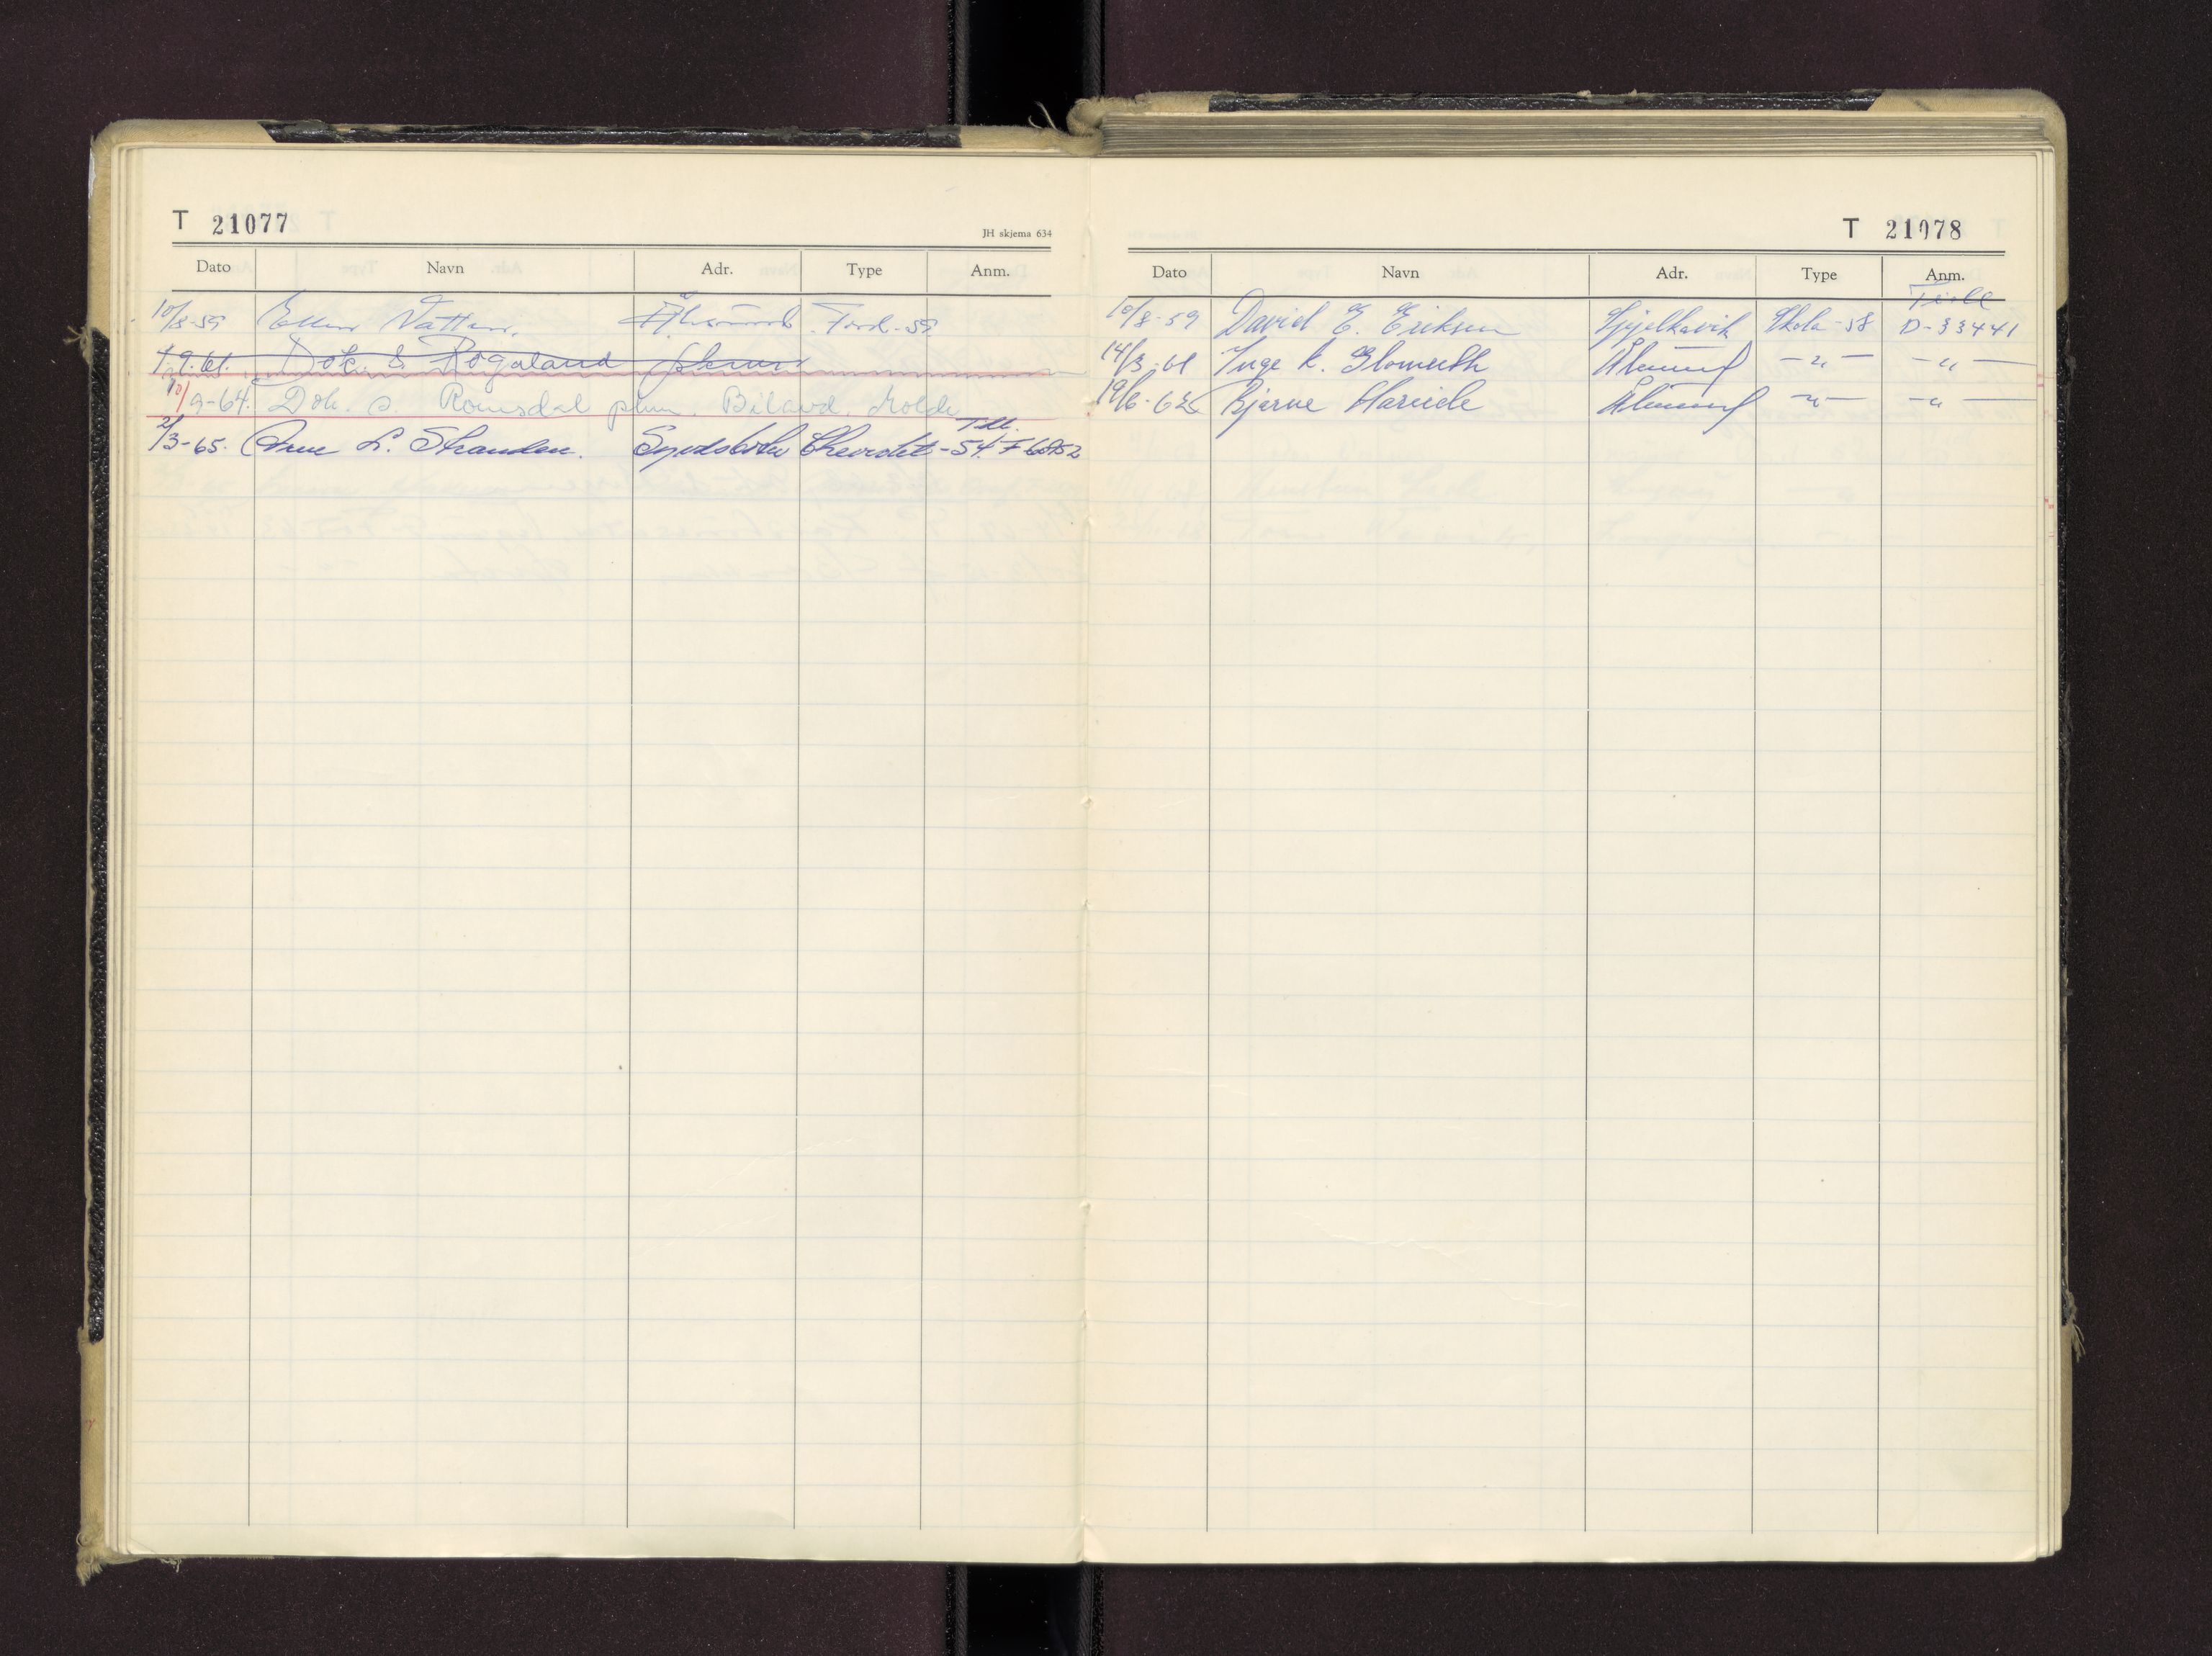 T 21077
JH skjema 634
Dato Navn Adr. Type Anm.
10/8-59 Vatten. Ålesund Ford-59
9.61. Dok. s. Rogaland skrus
10/9-64. Dok. s. Romsdal plum. Bilavd. Molde
Tdl.
2/3-65. Arne L. Stranden. Syvdsbotn Chevrolet -54. F
T 21078
Dato Navn Adr. Type Anm.
Tidl.
10/8-59 David E. Eriksen Spjelkavik Skoda-58 D-33441
14/3-61 Inge K. Ålesund —"— —"—
19/6-62 Bjarne Hareide Ålesund —"— —"—